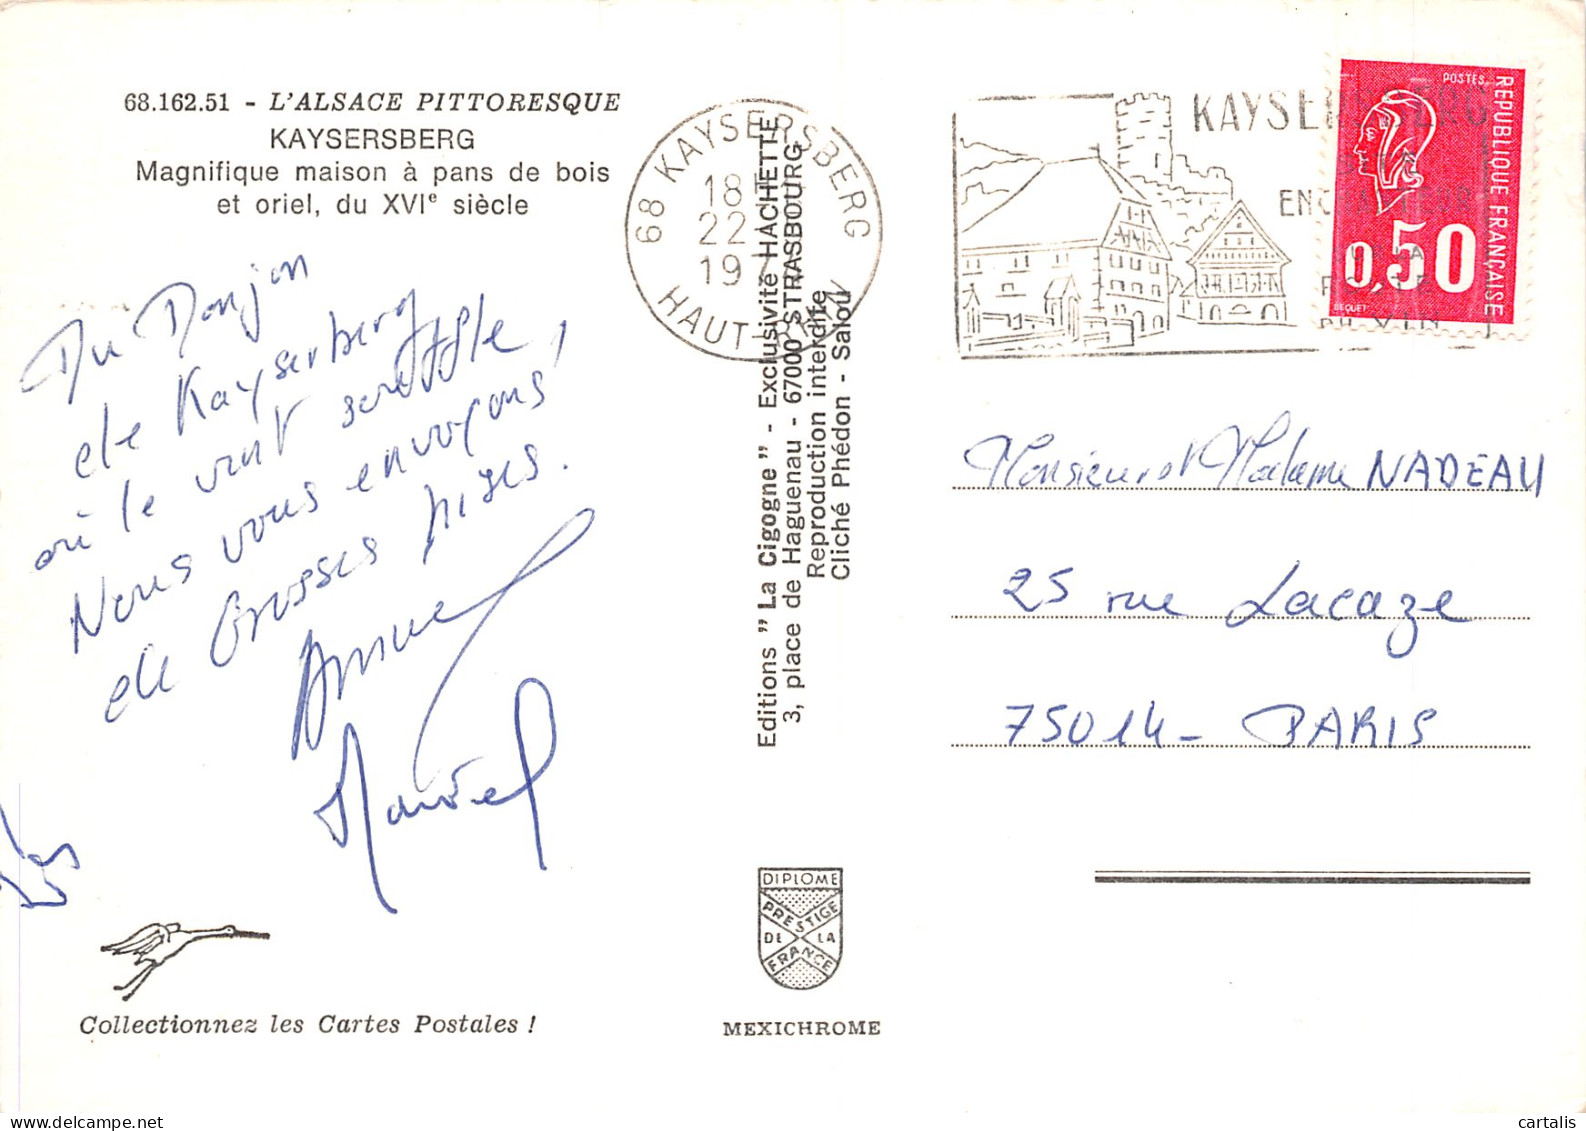 68.162.51 - L'ALSACE PITTORESQUE
KAYSERSBERG
Magnifique maison à pans de bois
et oriel, du XVIᵉ siècle
Du Donjon
de Kaysersberg
où le vent souffle,
Nous vous envoyons
de Grosses bises.
Collectionnez les Cartes Postales !
68 KAYSERSBERG
18
22
19
HAUT-RHIN
Editions "La Cigogne" - Exclusivité HACHETTE
3, place de Haguenau - 67000 STRASBOURG
Reproduction interdite
Cliché Phédon - Salou
DIPLOME
PRESTIGE
DE LA
FRANCE
MEXICHROME
KAYSERSBERG
DU VIN
POSTES
REPUBLIQUE FRANÇAISE
0,50
BEQUET
Monsieur et Madame NADEAU
25 rue Lacaze
75014 - PARIS
cartalis